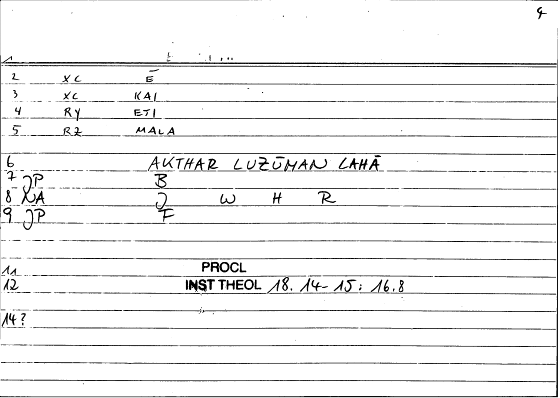 9
1
2 XC Ē
3 XC KAI
4 RY ETI
5 RZ MALA
6 AKTHAR LUZŪMAN LAHĀ
7 JP B
8 NA J W H R
9 JP F
11 PROCL
12 INST THEOL 18.14-15; 16.8
14?